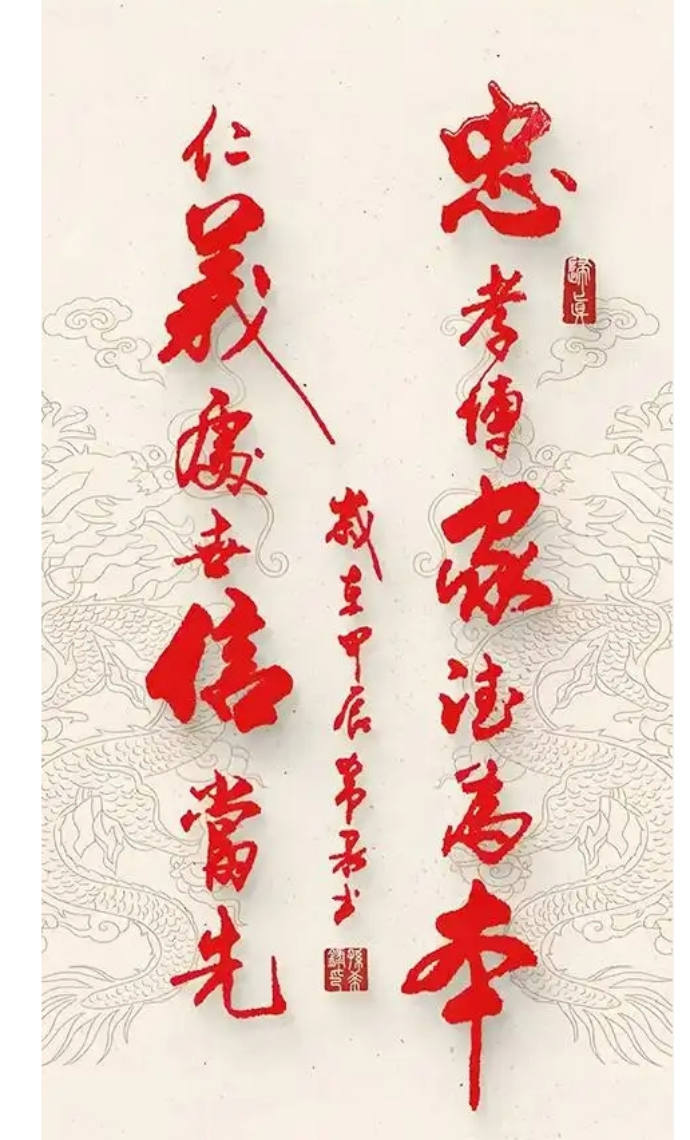 忠孝傳家德為本
歸真
仁義處世信當先
歲在甲辰